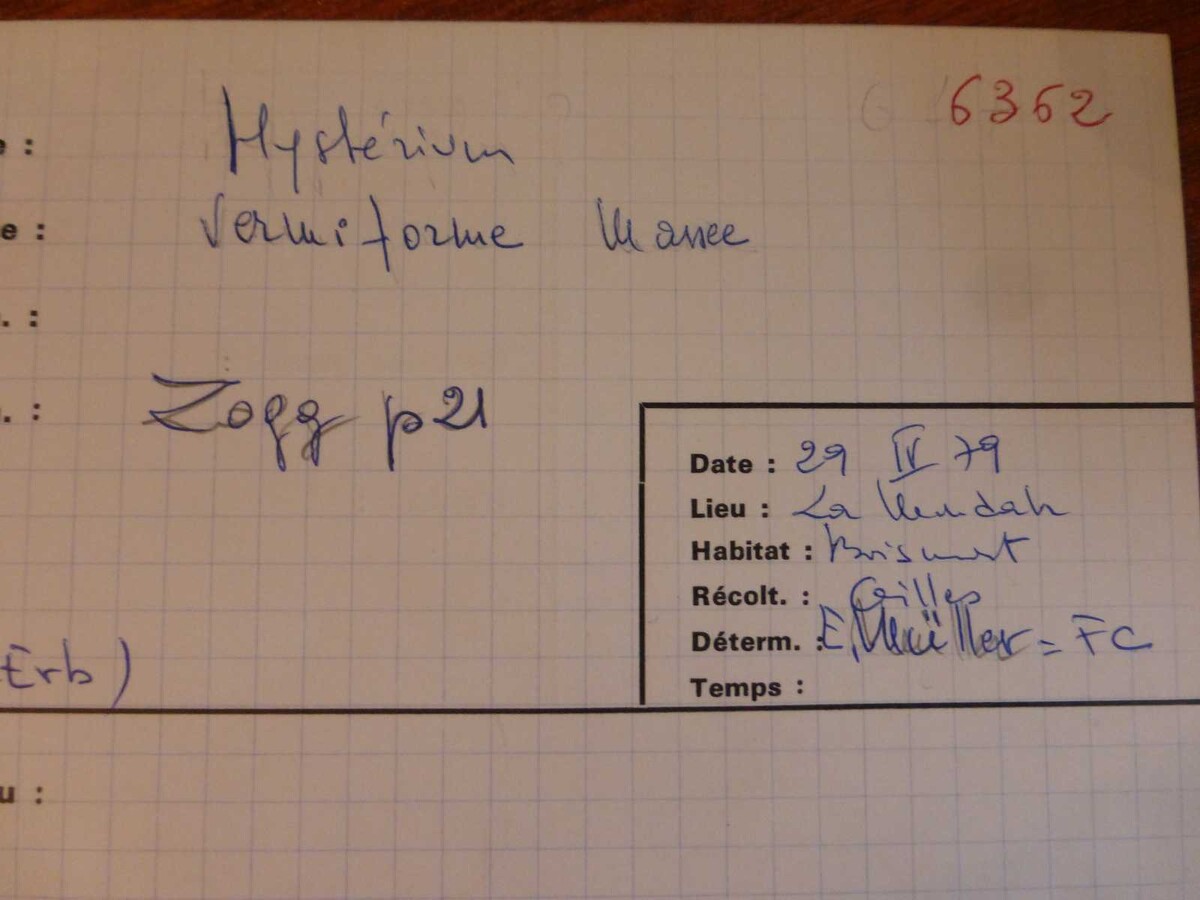 6362
e : Hystérium
e : vermiforme Massee
. :
. : Zogg p 21
Date : 29 IV 79
Lieu : La
Habitat : Bois mort
Récolt. : Gilles
Déterm. : E. Müller = FC
Temps :
Erb)
u :